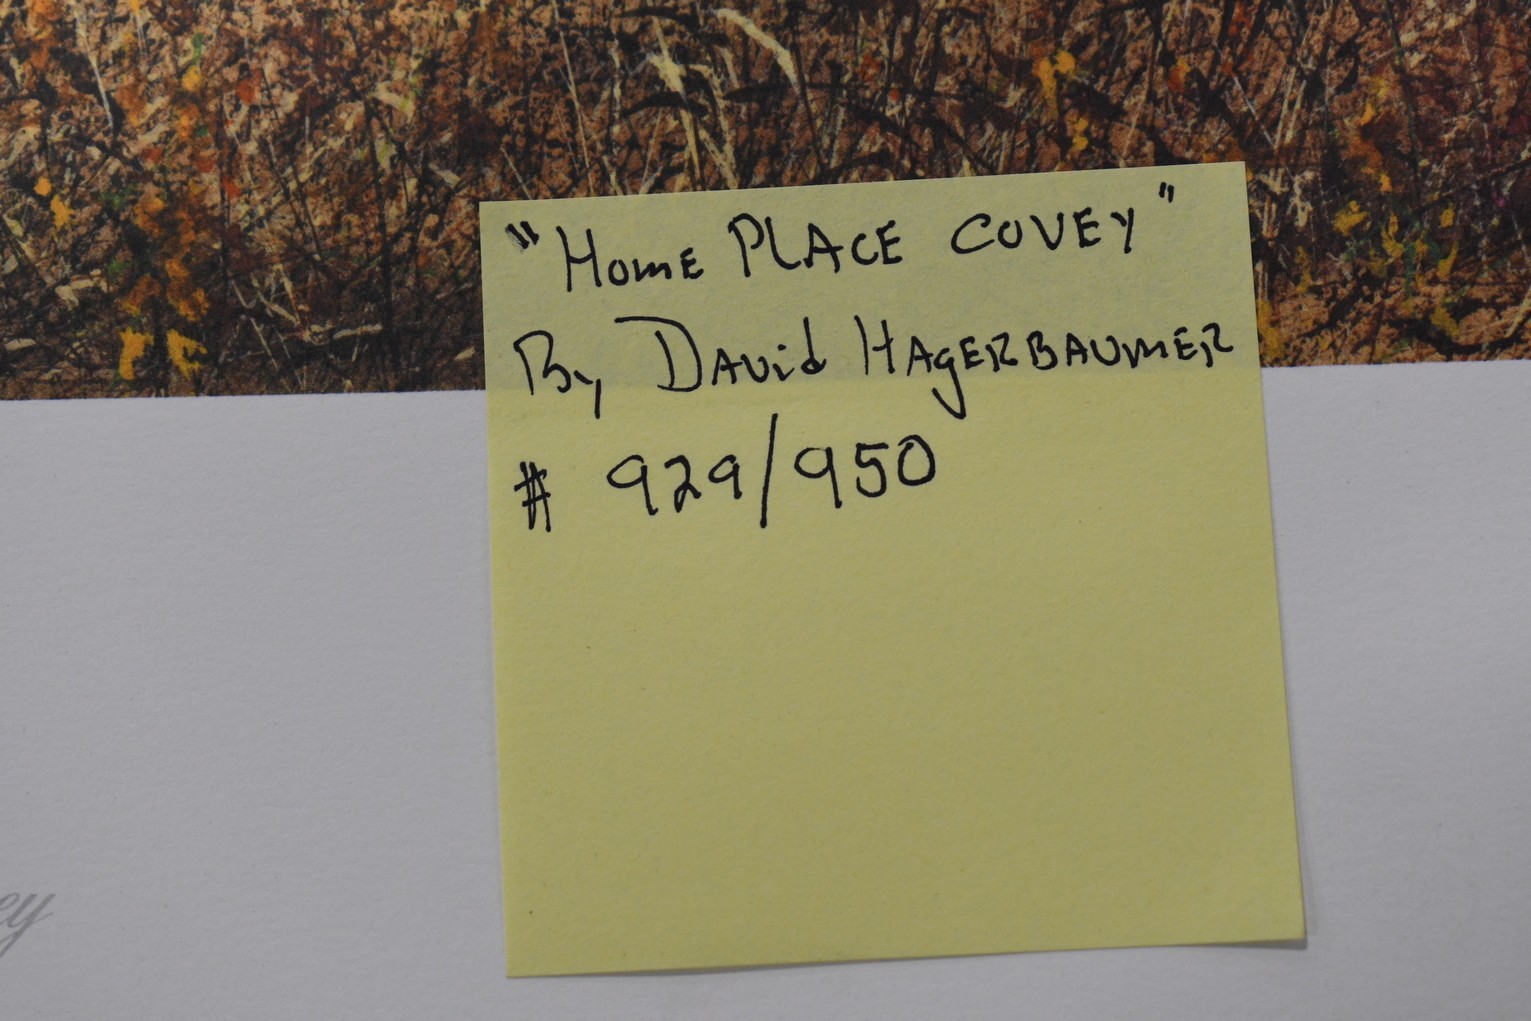 "Home PLACE COVEY"
By David HAgERBAUmER
# 929/950
ey